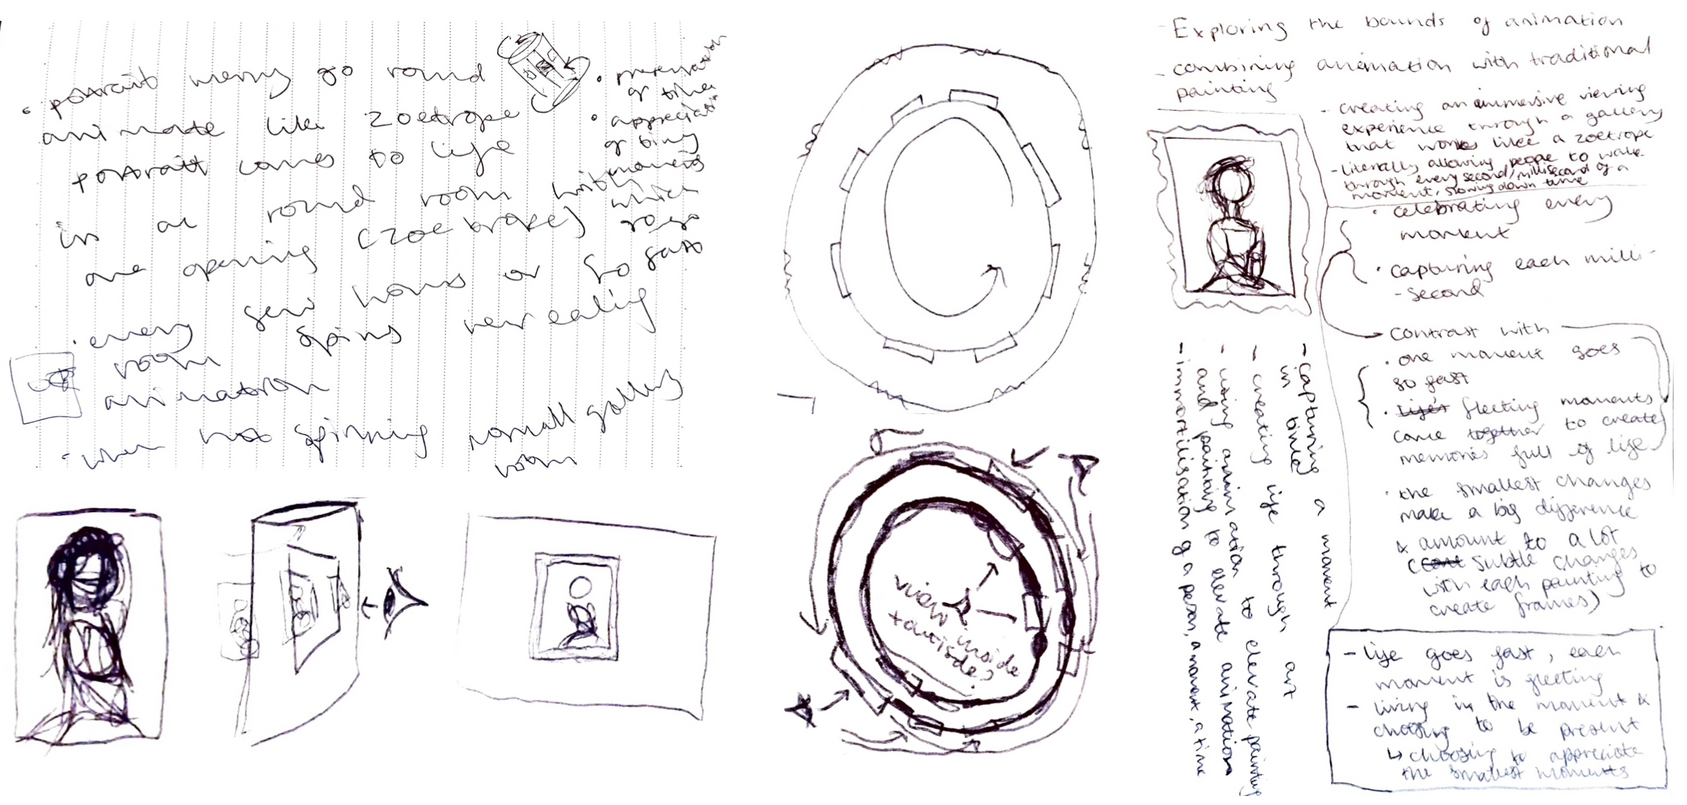 • portrait merry go round
animate like zoetrope
portrait comes to life
in a round room with
one opening (zoetrope)
• every few hours or so
room spins revealing
animation
• when not spinning normal gallery
room
• preservation
of time
• appreciation
of tiny
moments
which
go so
fast
view inside
+ outside?
- Exploring the bounds of animation
- combining animation with traditional
painting
- creating an immersive viewing
experience through a gallery
that works like a zoetrope
- Literally allowing people to walk
through every second/millisecond of a
moment, slowing down time
• celebrating every
moment
• capturing each milli-
-second
contrast with
• one moment goes
so fast
• life's fleeting moments
come together to create
memories full of life
• the smallest changes
make a big difference
& amount to a lot
subtle changes
with each painting to
create frames)
- life goes fast, each
moment is fleeting
- living in the moment &
choosing to be present
↳ choosing to appreciate
the smallest moments
- capturing a moment
in time
- creating life through art
- using animation to elevate painting
and painting to elevate animation
- immortilisation of a person, a moment, a time